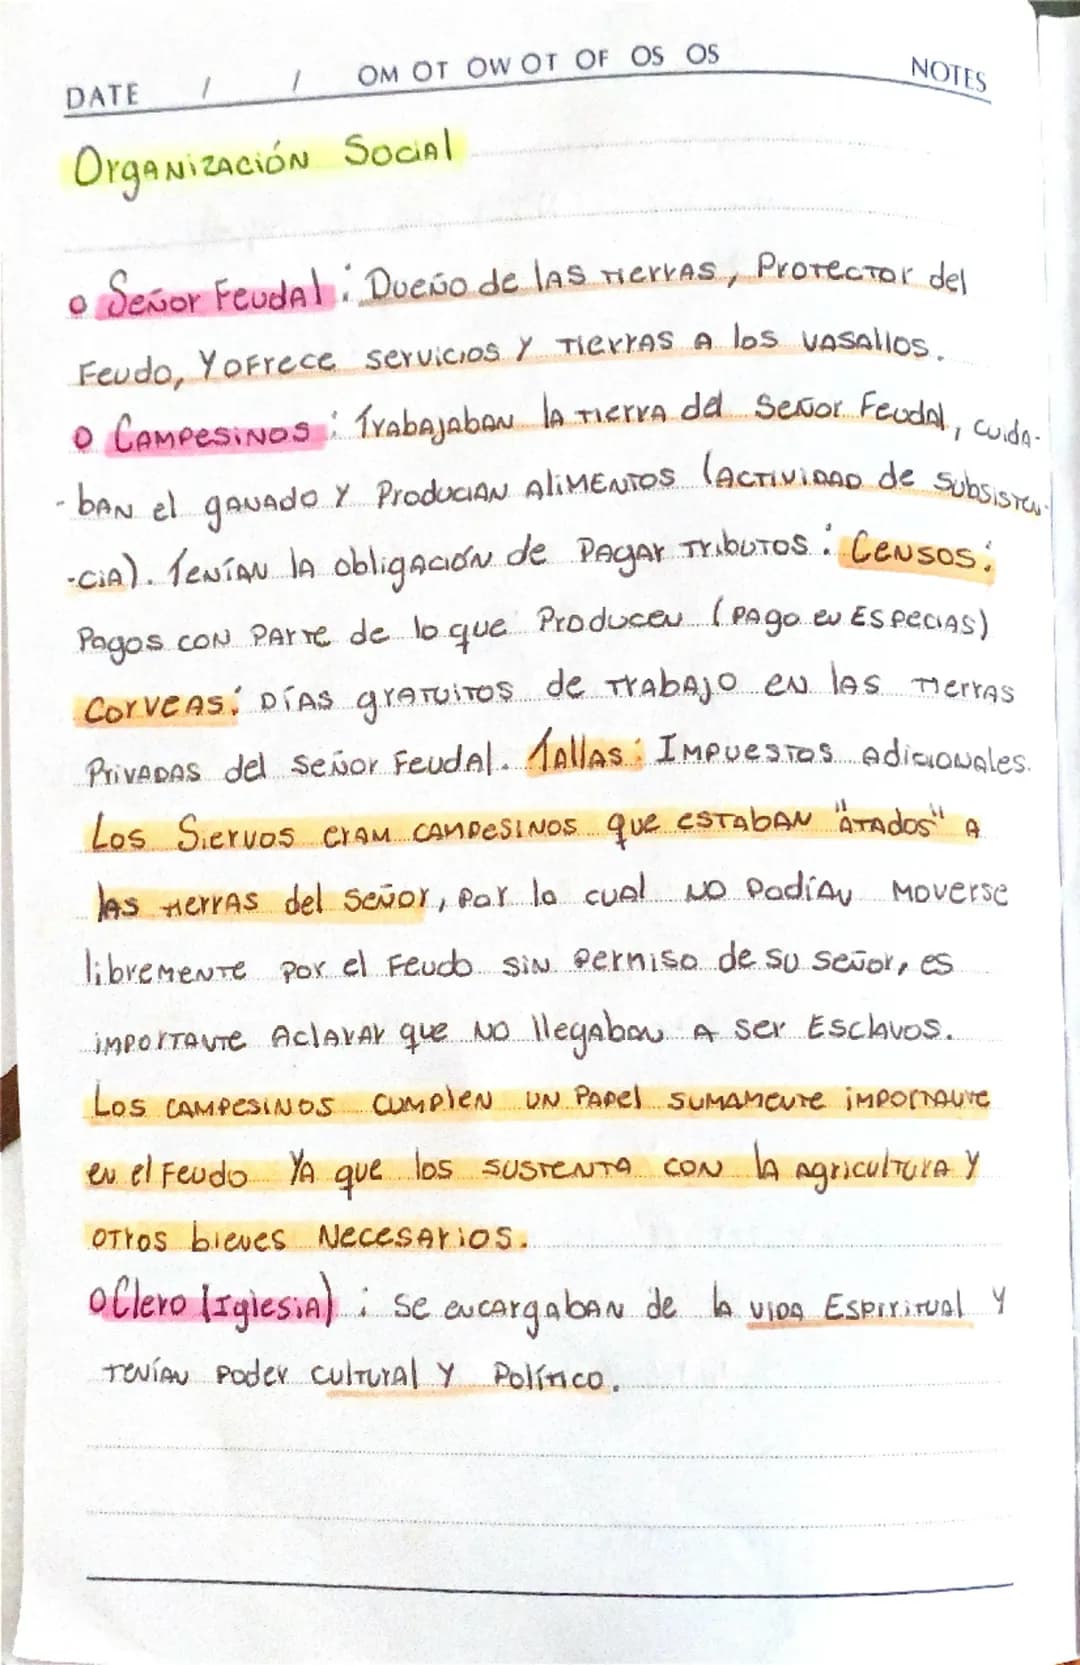 DATE / / OM OT OW OT OF OS OS NOTES
Organización Social
o Señor Feudal: Dueño de las tierras, Protector del
Feudo, Y ofrece servicios y tierras a los vasallos.
o Campesinos: Trabajaban la tierra del Señor Feudal, cuida-
-ban el ganado y Producian alimentos (actividad de subsisten-
-cia). Tenían la obligación de Pagar tributos: Censos:
Pagos con Parte de lo que Producen (Pago en Especias)
Corveas: Días gratuitos de trabajo en las tierras
Privadas del Señor Feudal. Tallas: Impuestos adicionales.
Los Siervos eram campesinos que estaban "atados" a
las tierras del Señor, por lo cual no Podían moverse
libremente por el Feudo sin permiso de su señor, es
importante aclarar que no llegaban a ser Esclavos.
Los campesinos cumplen un Papel sumamente importante
en el Feudo Ya que los sustenta con la agricultura y
otros bienes Necesarios.
o Clero (Iglesia): Se encargaban de la vida Espiritual y
tenían Poder cultural y Político.